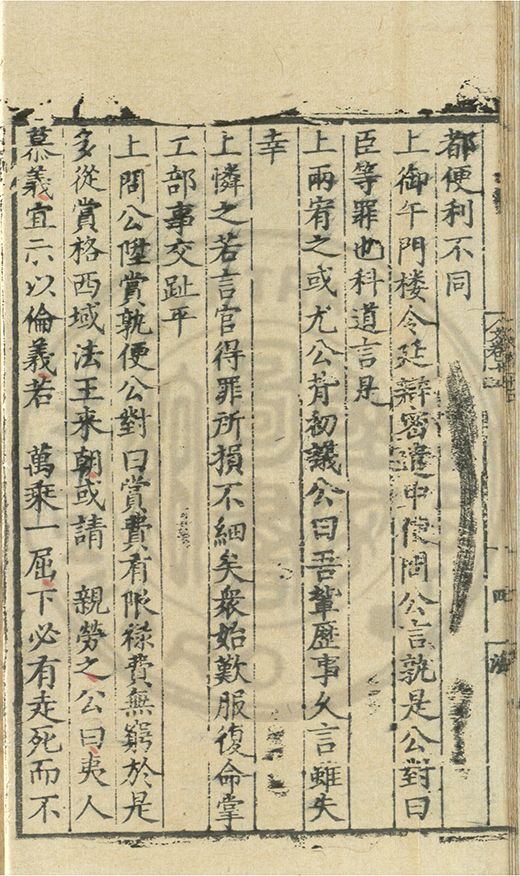 都便利不同
上御午門楼令廷辯密遣中使問公言孰是公對曰
臣等罪也科道言是
上兩宥之或尤公背初議公曰吾輩歷事久言雖失
幸
上憐之若言官得罪所損不細矣衆始歎服復命掌
工部事交趾平
上問公陞賞孰便公對曰賞費有限祿費無窮於是
多從賞格西域法王来朝或請 親勞之公曰夷人
慕義宜示以倫義若 萬乘一屈下必有走死而不